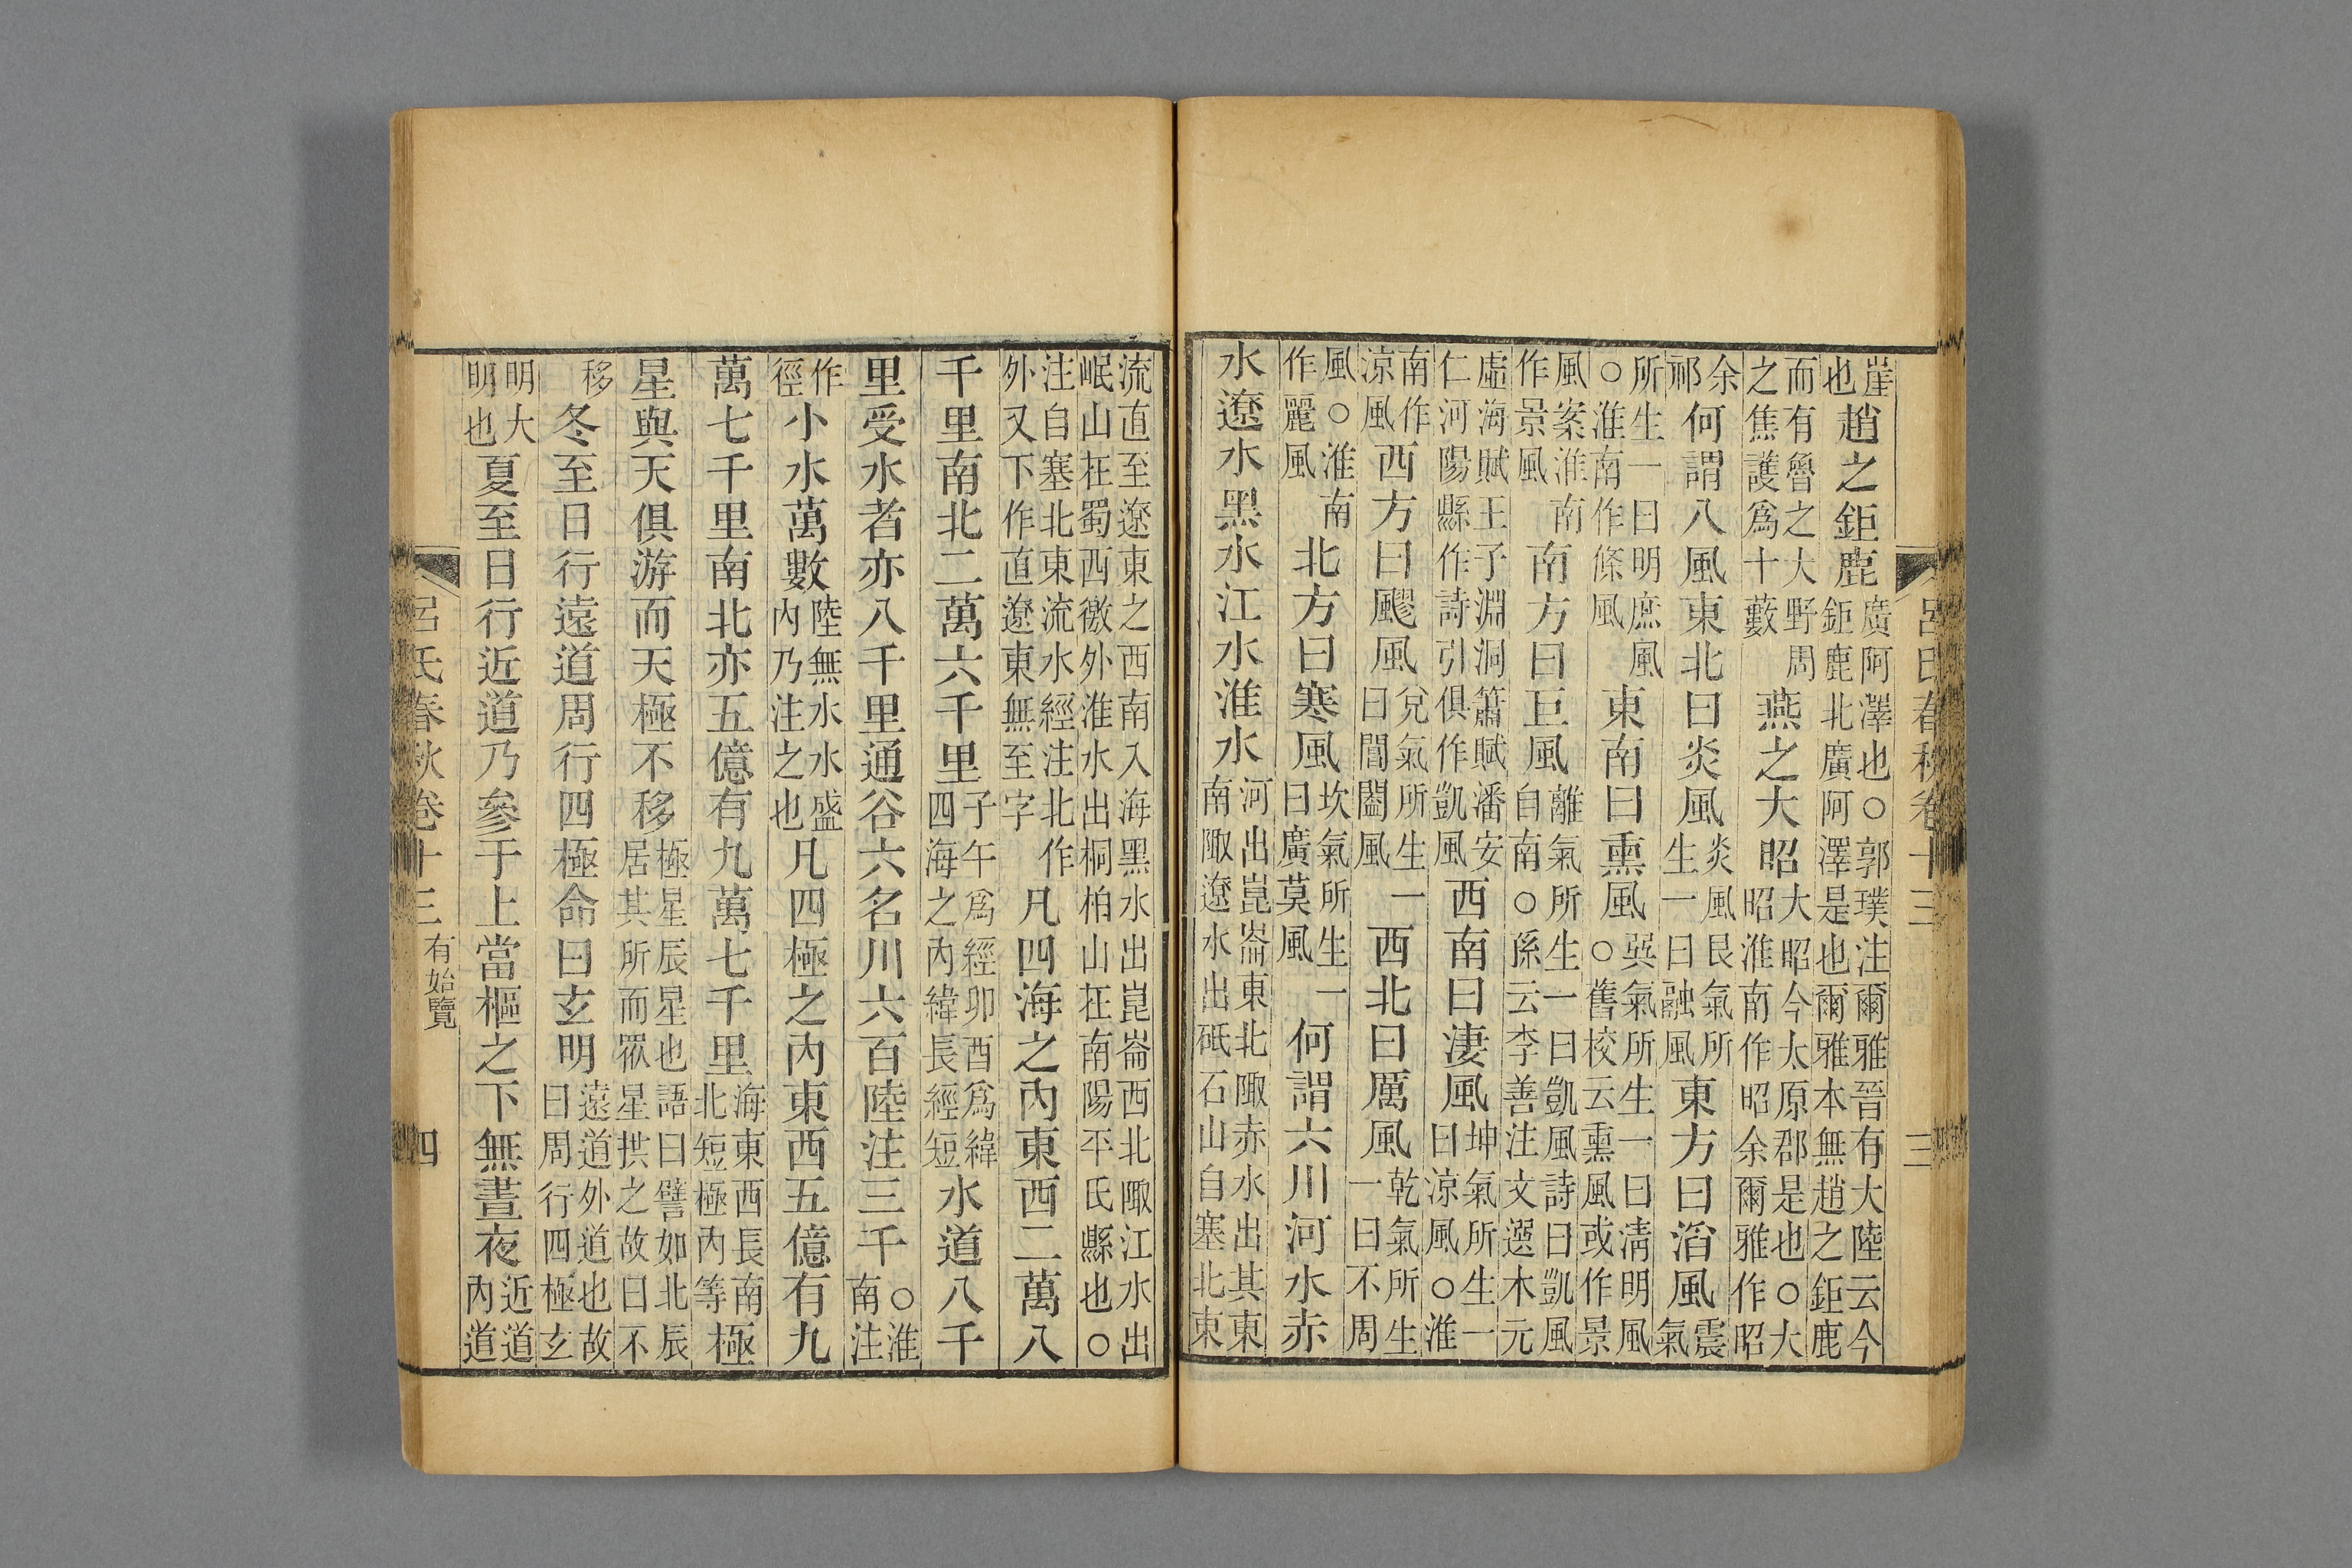 呂氏春秋卷十三 三
崖也趙之鉅鹿廣阿澤也○郭璞注爾雅晉有大陸云今鉅鹿北廣阿澤是也爾雅本無趙之鉅鹿
而有魯之大野周之焦護爲十藪燕之大昭大昭今太原郡是也○大昭淮南作昭余爾雅作昭
余祁何謂八風東北曰炎風炎風艮氣所生一曰融風東方曰滔風震氣
所生一曰明庶風○淮南作條風東南曰熏風巽氣所生一曰淸明風○舊校云熏風或作景
風案淮南作景風南方曰巨風離氣所生一曰凱風詩曰凱風自南○孫云李善注文選木元
虛海賦王子淵洞簫賦潘安仁河陽縣作詩引俱作凱風西南曰淒風坤氣所生一曰涼風○淮
南作涼風西方曰飂風兌氣所生一曰閶闔風西北曰厲風乾氣所生一曰不周
風○淮南作麗風北方曰寒風坎氣所生一曰廣莫風何謂六川河水赤
水遼水黑水江水淮水河出崑崙東北陬赤水出其東南陬遼水出砥石山自塞北東
流直至遼東之西南入海黑水出崑崙西北陬江水出岷山在蜀西徼外淮水出桐柏山在南陽平氏縣也○
注自塞北東流水經注北作外又下作直遼東無至字凡四海之內東西二萬八
千里南北二萬六千里子午爲經卯酉爲緯四海之內緯長經短水道八千
里受水者亦八千里通谷六名川六百陸注三千○淮南注
作徑小水萬數陸無水水盛內乃注之也凡四極之內東西五億有九
萬七千里南北亦五億有九萬七千里海東西長南北短極內等極
星與天俱游而天極不移極星辰星也語曰譬如北辰居其所而眾星拱之故曰不
移冬至日行遠道周行四極命曰玄明遠道外道也故曰周行四極玄
明大明也夏至日行近道乃參于上當樞之下無晝夜近道內道
呂氏春秋卷十三 有始覽 四